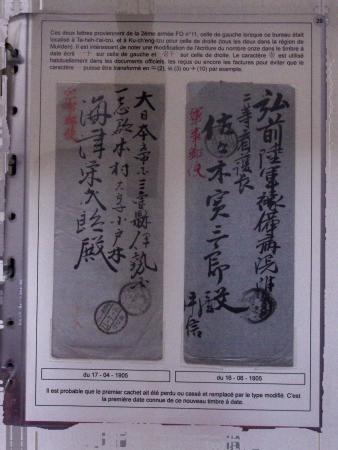 28
Ces deux lettres proviennent de la 2ème armée FO n°11, celle de gauche lorsque ce bureau était
localisé à Ta-heh-l'ai-tzu, et à Ku-ch'eng-tzu pour celle de droite (tous les deux dans la région de
Mukden). Il est intéressant de noter une modification de l'écriture du nombre onze dans le timbre à
date écrit 十一 sur celle de gauche et sur celle de droite. Le caractère est utilisé
habituellement dans les documents officiels, les reçus ou encore les factures pour éviter que le
caractère puisse être transformé en 二(2), 三(3) ou 十(10) par exemple.
大日本帝国三重縣伊勢国
一志郡本村大字小戸木
海津栄太郎殿
軍事郵便
弘前陸軍豫備病院
三等看護長
佐々木実三郎殿
軍事郵便
平信
du 17 - 04 - 1905
du 16 - 06 - 1905
Il est probable que le premier cachet ait été perdu ou cassé et remplacé par le type modifié. C'est
la première date connue de ce nouveau timbre à date.